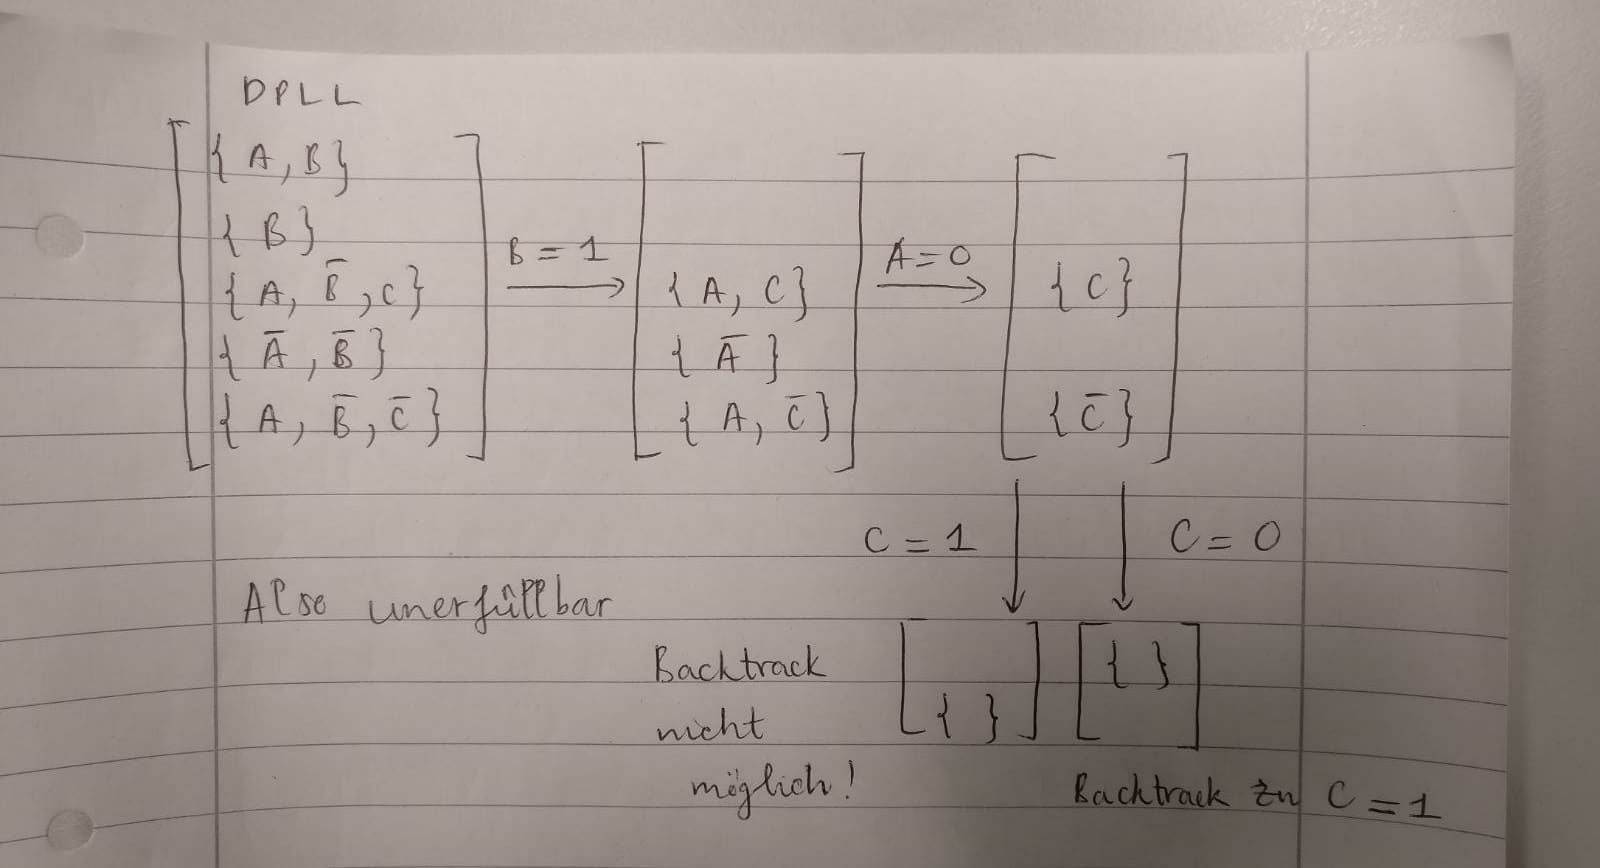 DPLL
{A, B}
{B}
{A, B̅, C}
{A̅, B̅}
{A, B̅, C̅}
B = 1
{A, C}
{A̅}
{A, C̅}
A = 0
{C}
{C̅}
C = 1
C = 0
Also unerfüllbar
{ }
{ }
Backtrack
nicht
möglich!
Backtrack zu C = 1